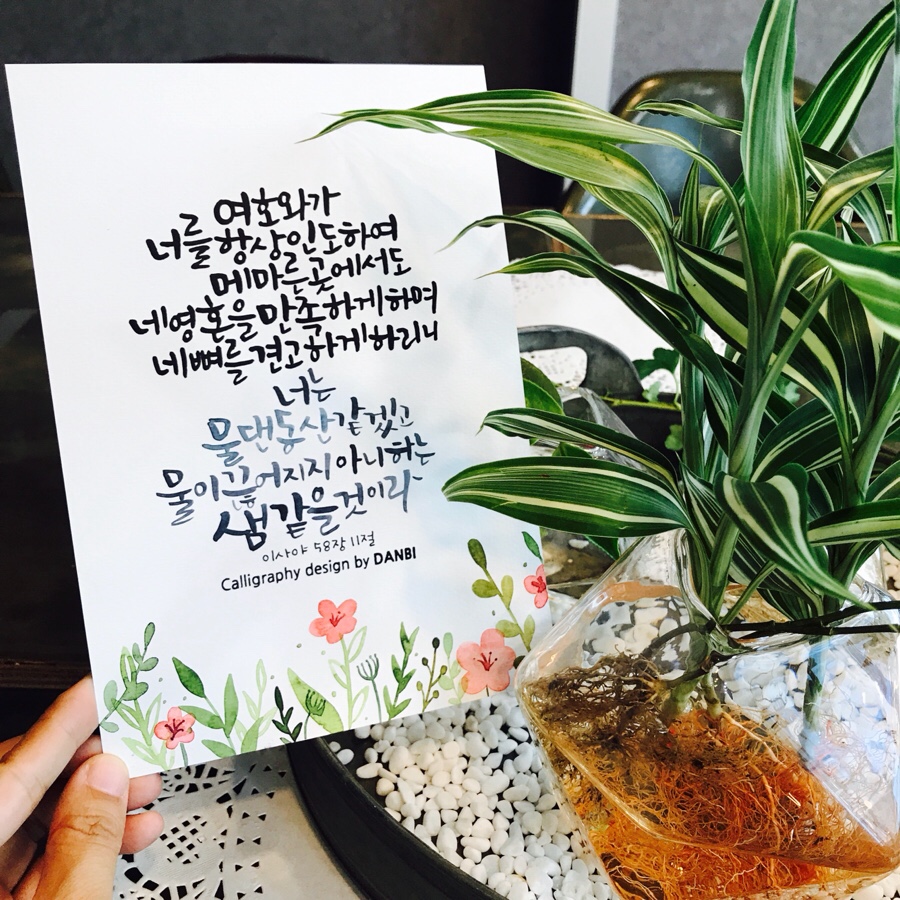 여호와가
너를 항상 인도하여
메마른 곳에서도
네 영혼을 만족하게 하며
네 뼈를 견고하게 하리니
너는
물 댄 동산 같겠고
물이 끊어지지 아니하는
샘 같을 것이라
이사야 58장 11절
Calligraphy design by DANBI